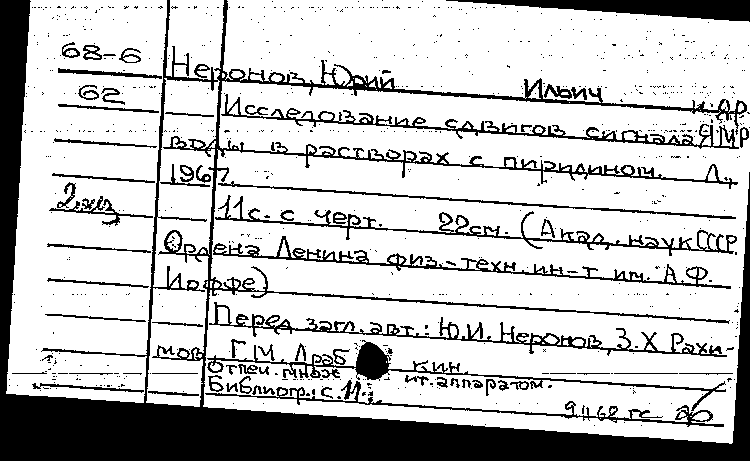 68-6 Неронов, Юрий Ильич и др.
62 Исследование сдвигов сигнала ЯМР
воды в растворах с пиридином. Л.,
1967.
2 экз 11 с. с черт. 22 см. (Акад. наук СССР.
Ордена Ленина физ.-техн. ин-т им. А.Ф.
Иоффе)
Перед загл. авт.: Ю.И. Неронов, З.Х. Рахи-
мов, Г.М. Драб кин.
Отпеч. множ ит. аппаратом.
Библиогр.: с. 11.